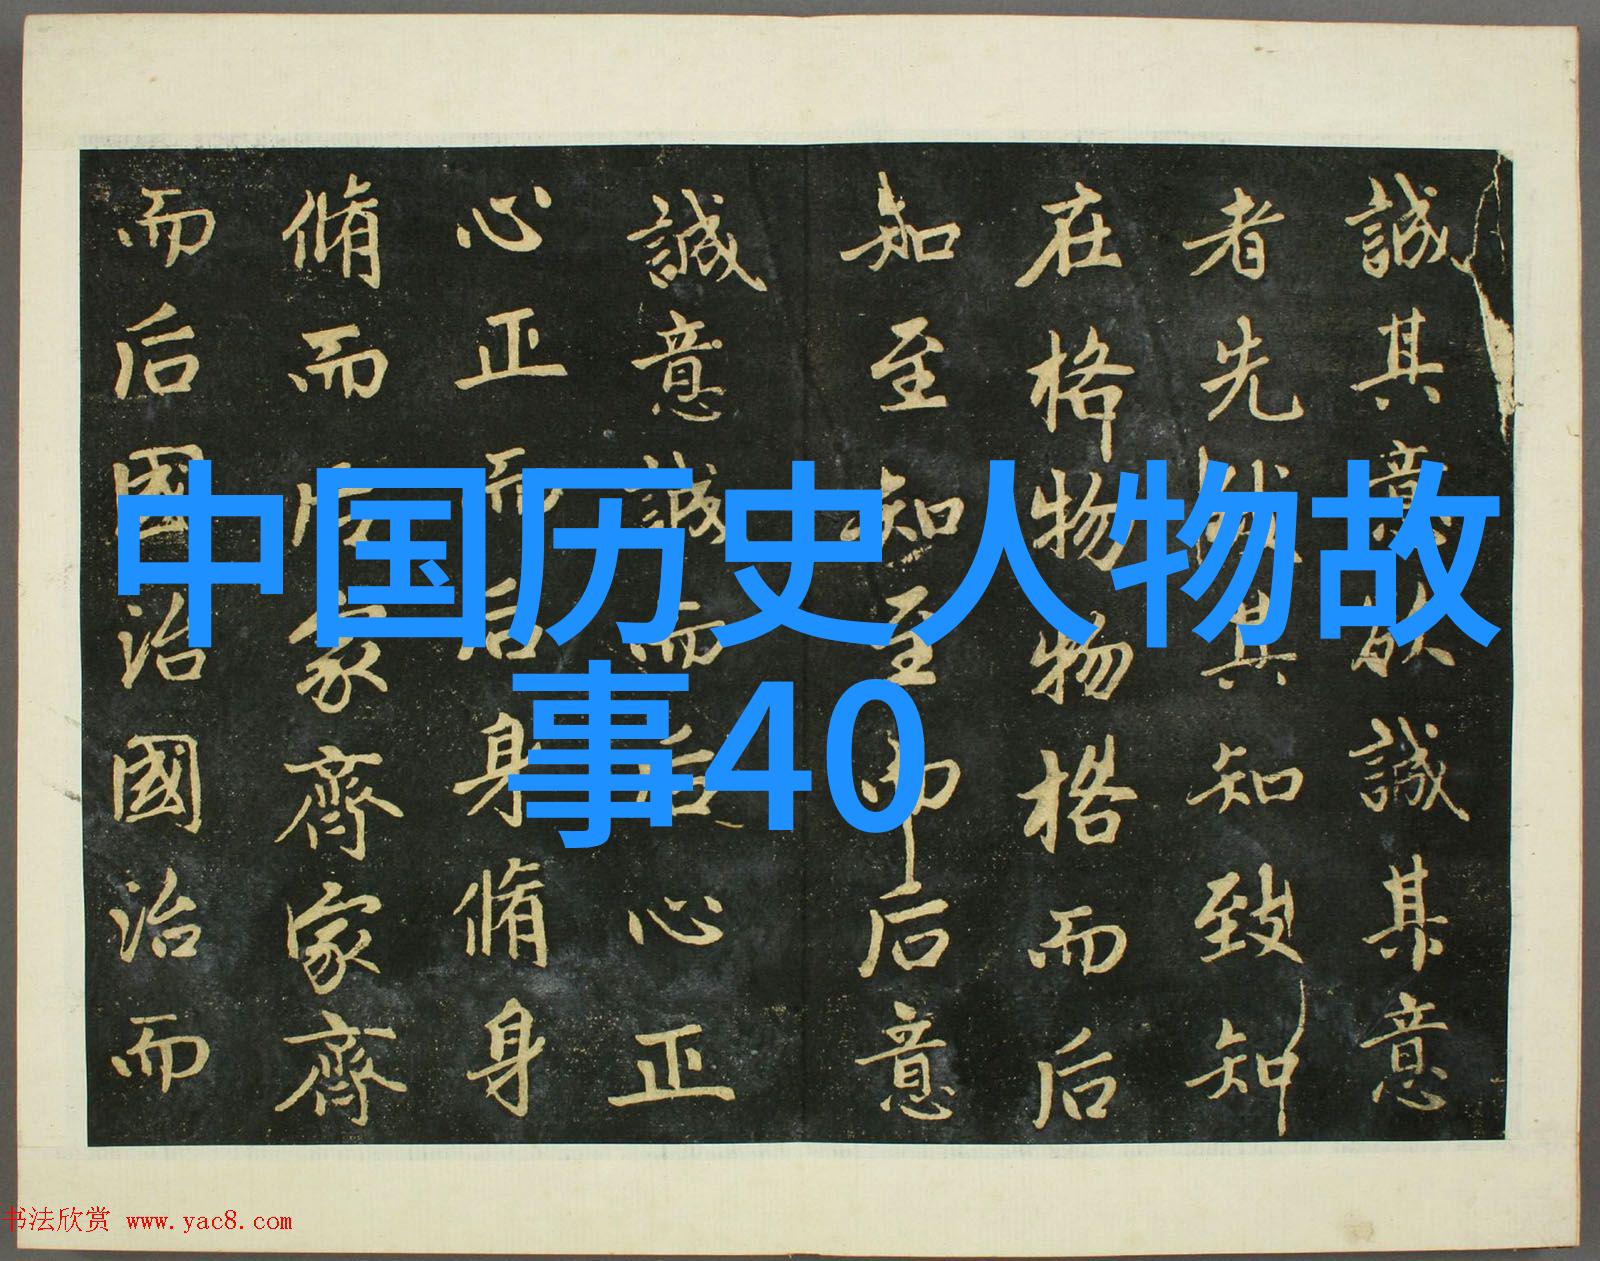 中国历史人物故
事40
誠其意欲誠其意
者先致其知致知
在格物物格而后
知至知至而后意
誠意誠而后心正
心正而后身脩身
脩而后家齊家齊
而后國治國治而
书法欣赏 www.yac8.com